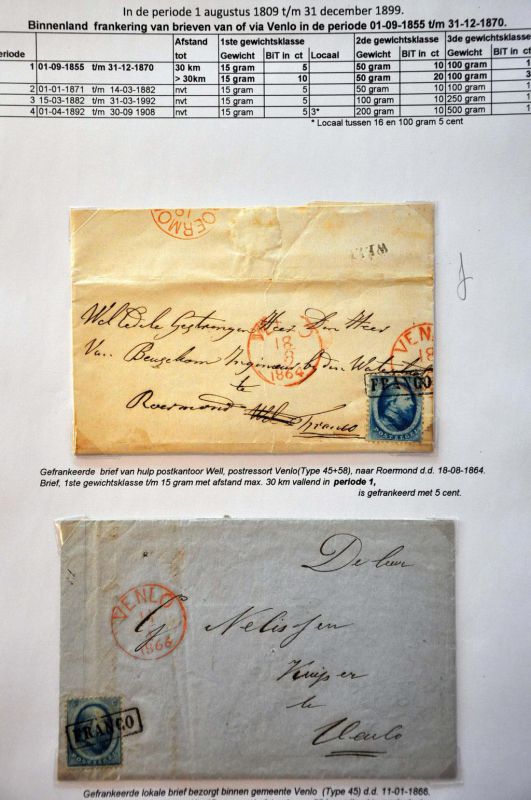 In de periode 1 augustus 1809 t/m 31 december 1899.
Binnenland frankering van brieven van of via Venlo in de periode 01-09-1855 t/m 31-12-1870.
Afstand 1ste gewichtsklasse 2de gewichtsklasse 3de gewichtsklasse
eriode tot Gewicht BiT in ct Locaal Gewicht BiT in ct Gewicht
1 01-09-1855 t/m 31-12-1870 30 km 15 gram 5 50 gram 10 100 gram 1
> 30km 15 gram 10 50 gram 20 100 gram 3
2 01-01-1871 t/m 14-03-1882 nvt 15 gram 5 50 gram 10 100 gram 1
3 15-03-1882 t/m 31-03-1992 nvt 15 gram 5 100 gram 10 250 gram 1
4 01-04-1892 t/m 30-09 1908 nvt 15 gram 5 3* 200 gram 10 500 gram 1
* Locaal tussen 16 en 100 gram 5 cent
WELL
Wel Edele Gestrengen Heer Den Heer
Van Beugekom Ingenieur bij den Waterstaat
te
Roermond
Franco
VENLO
18
8
1864
18
FRANCO
Gefrankeerde brief van hulp postkantoor Well, postressort Venlo(Type 45+58), naar Roermond d.d. 18-08-1864.
Brief, 1ste gewichtsklasse t/m 15 gram met afstand max. 30 km vallend in periode 1,
is gefrankeerd met 5 cent.
De heer
VENLO
1866
G Nelissen
Kuiper
te
Venlo
FRANCO
Gefrankeerde lokale brief bezorgt binnen gemeente Venlo (Type 45) d.d. 11-01-1866.